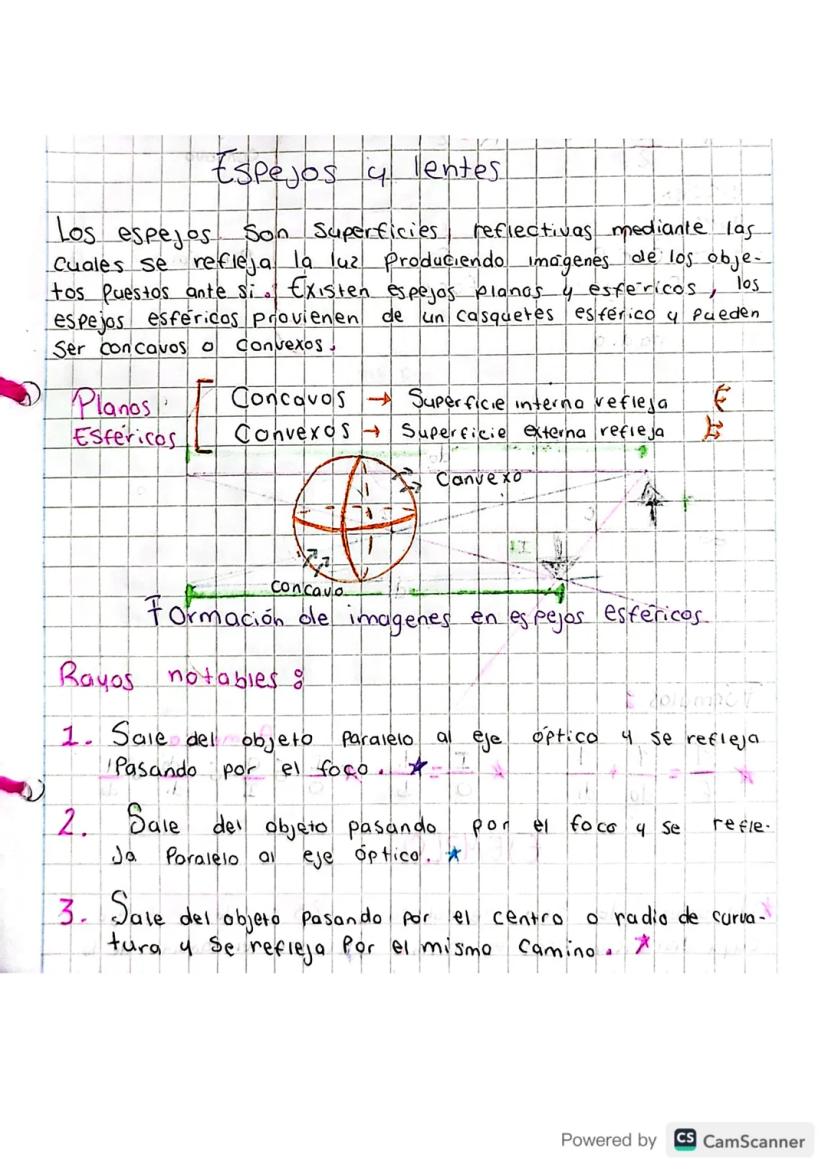 Espejos y lentes
Los espejos son superficies reflectivas mediante las
cuales se refleja la luz produciendo imágenes de los obje-
tos puestos ante si. Existen espejos planos y esféricos, los
espejos esféricos provienen de un casquetes esférico y pueden
ser concavos o convexos.
Planos
Esféricos
Concavos → Superficie interna refleja
Convexos → Superficie externa refleja
Convexo
concavo
Formación de imagenes en espejos esféricos
Rayos notables:
1. Sale del objeto paralelo al eje óptico y se refleja
Pasando por el foco. ★
2. Sale del objeto pasando por el foco y se refle-
ja Paralelo al eje óptico. ★
3. Sale del objeto pasando por el centro o radio de curva-
tura y se refleja por el mismo camino. ★
Powered by CS CamScanner